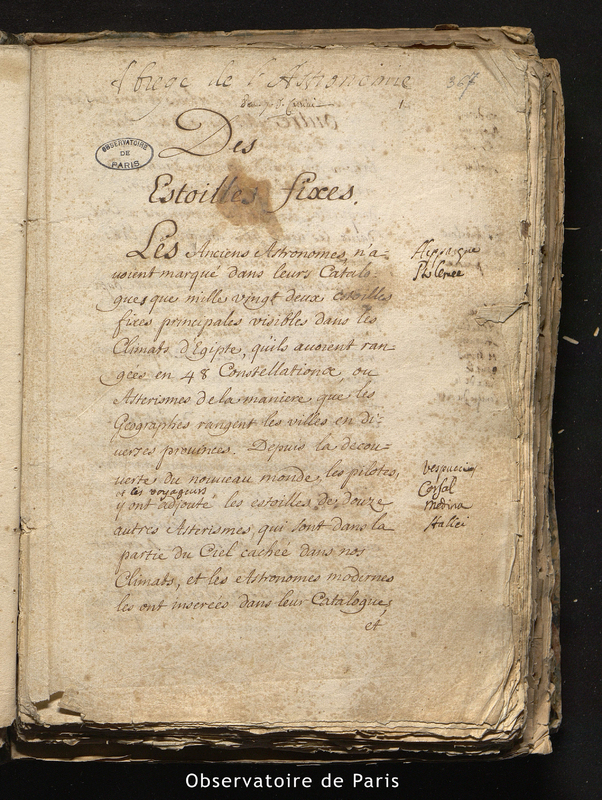 Abregé de l'Astronomie
1
OBSERVATOIRE
DE
PARIS
Des
Estoilles fixes.
Les Anciens Astronomes, n'a-
voient marqué dans leurs Catalo-
gues que mille vingt deux estoilles
fixes principales visibles dans les
Climats d'Egipte, qu'ils avoient ran-
gées en 48 Constellations, ou
Asterismes de la maniere, que les
Geographes rangent les villes en di-
verses provinces. Depuis la decou-
verte du nouveau monde, les pilotes,
et les voyageurs
y ont adjouté les estoilles de douze
autres Asterismes, qui sont dans la
partie du Ciel cachée dans nos
Climats, et les Astronomes modernes
les ont inserées dans leur Catalogue,
et
Hipparque
Ptolemée
Vespucci
Corsal
Medina
Halici
Observatoire de Paris